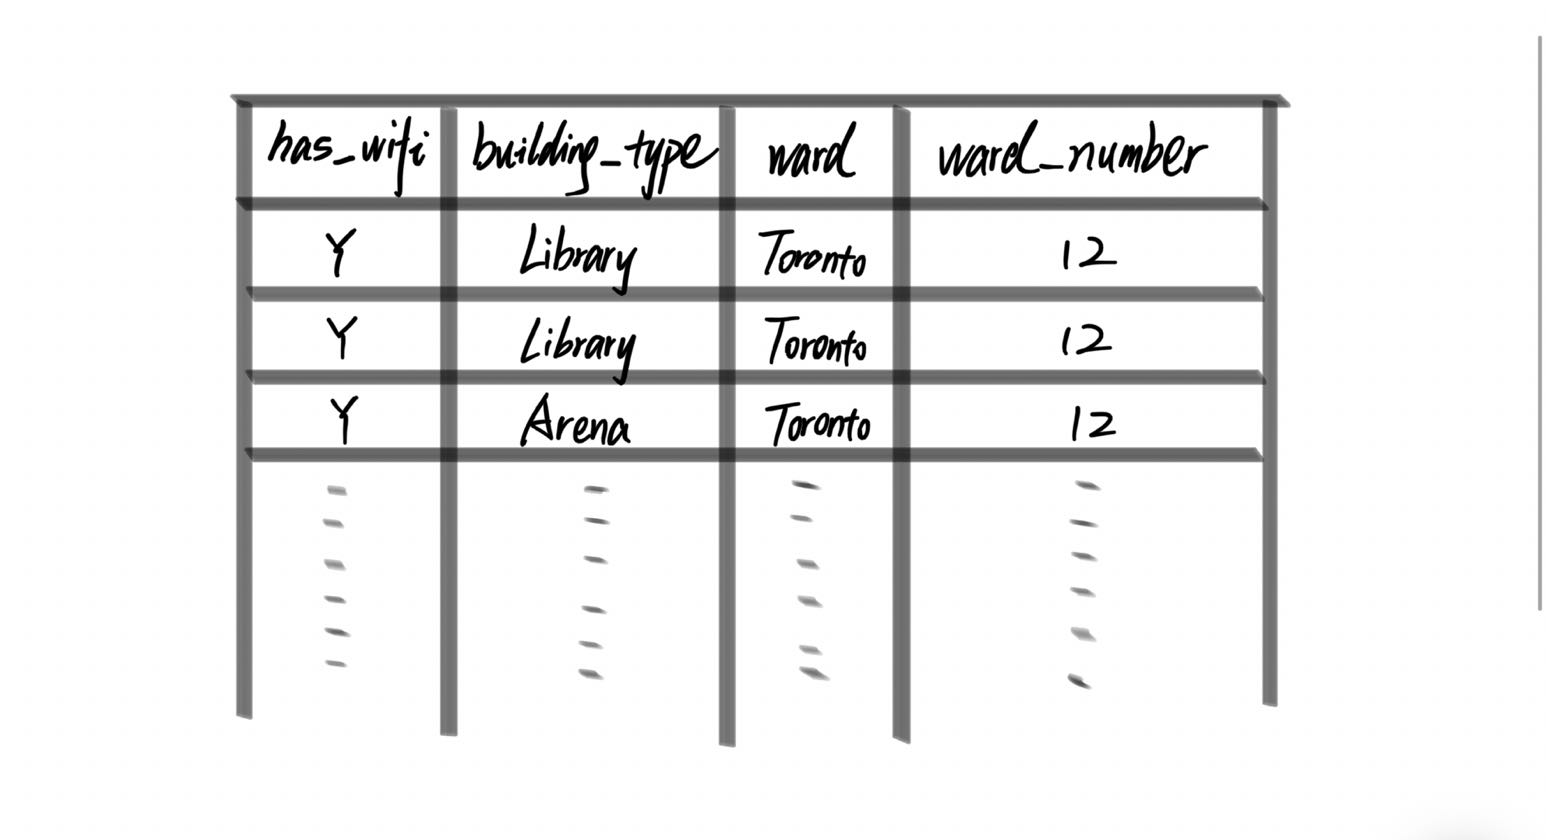 has_wifi building_type ward ward_number
Y Library Toronto 12
Y Library Toronto 12
Y Arena Toronto 12